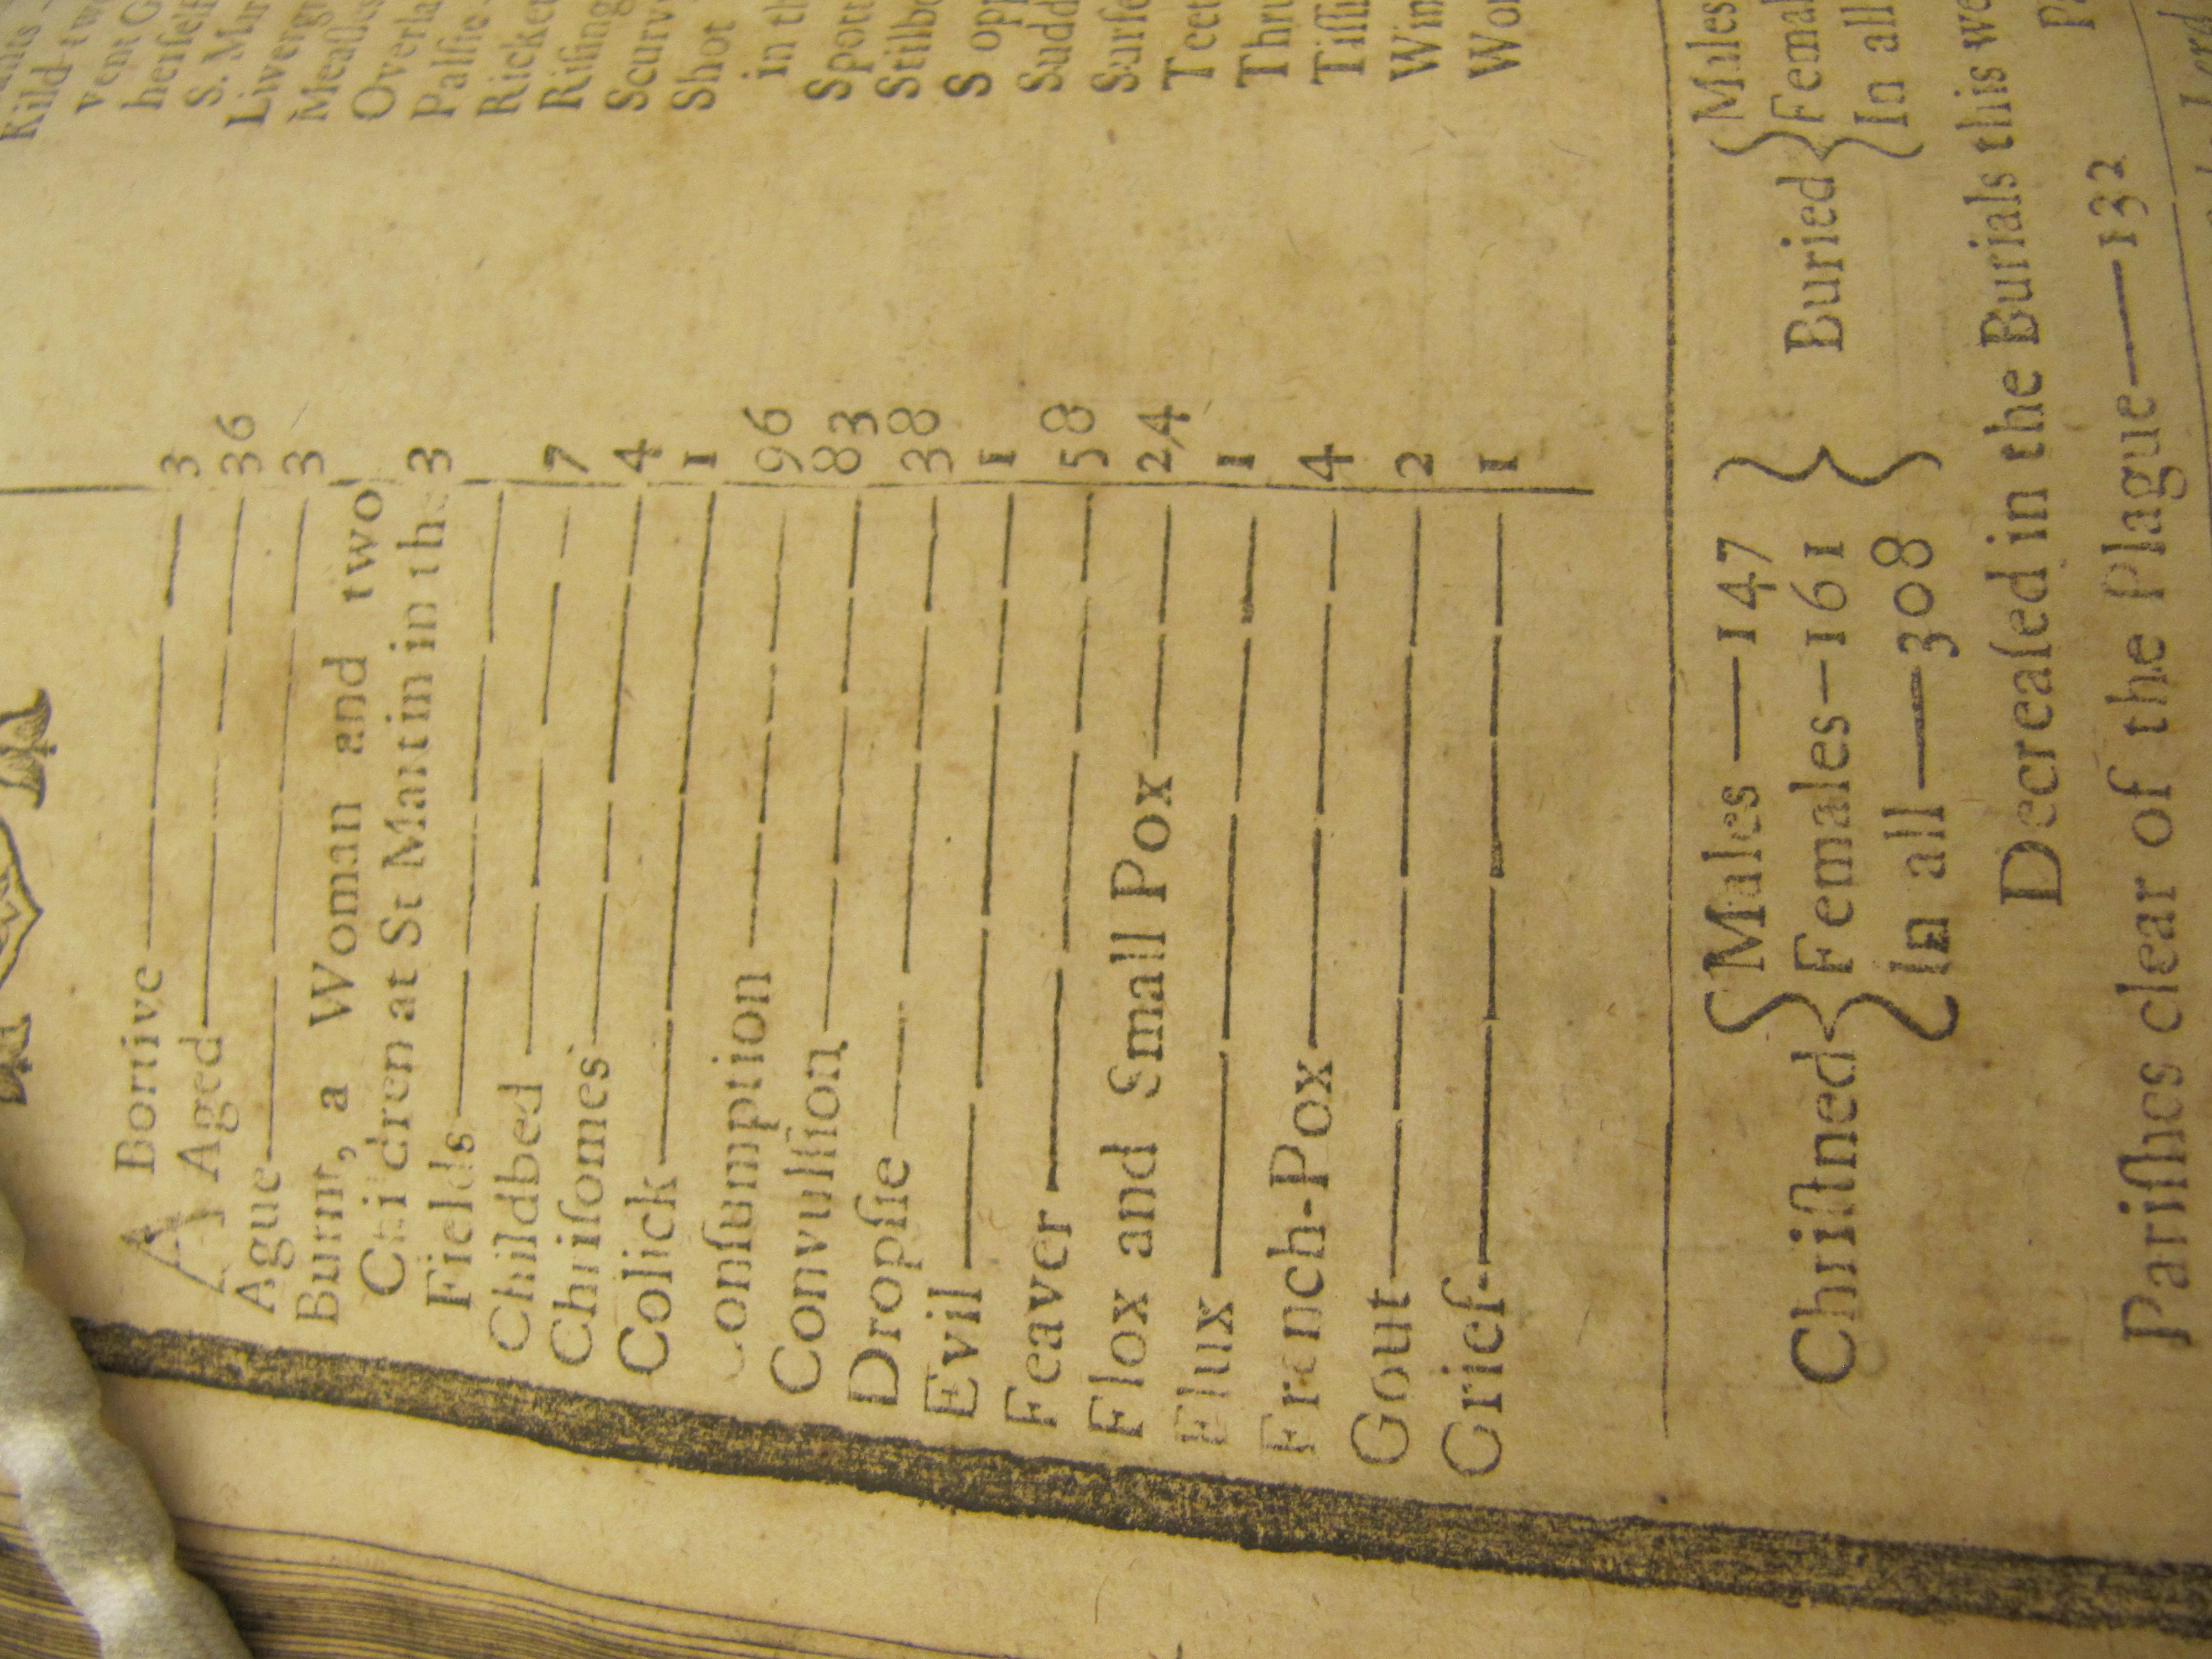 ABortive — 3
Aged — 36
Ague — 3
Burnt, a Woman and two
Children at St Martin in the 3
Fields —
Childbed — 7
Chriſomes — 4
Colick — 1
Conſumption — 96
Convulſion — 83
Dropſie — 38
Evil — 1
Feaver — 58
Flox and Small Pox — 24
Flux — 1
French-Pox — 4
Gout — 2
Grief — 1
Kild two
vent G
herſelf
S. Mar
Livergr
Meaſles
Overla
Palſie
Ricket
Riſing
Scurv
Shot
in th
Spott
Stilbo
Sopp
Sudd
Surfe
Teet
Thru
Tiſſi
Win
Wo
Chriſtned { Males — 147 } Buried { Males
Females — 161 Femal
In all — 308 In all
Decreaſed in the Burials this we
Pariſhes clear of the Plague — 132 Pa